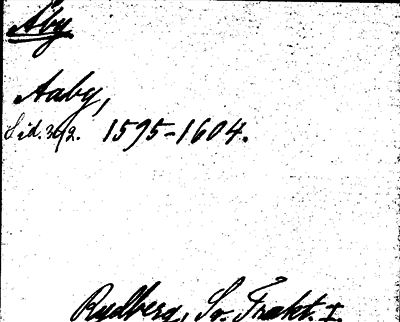 Åby
Aaby,
Sid. 1595-1604.
Rudberg, Sv. Trakt. I